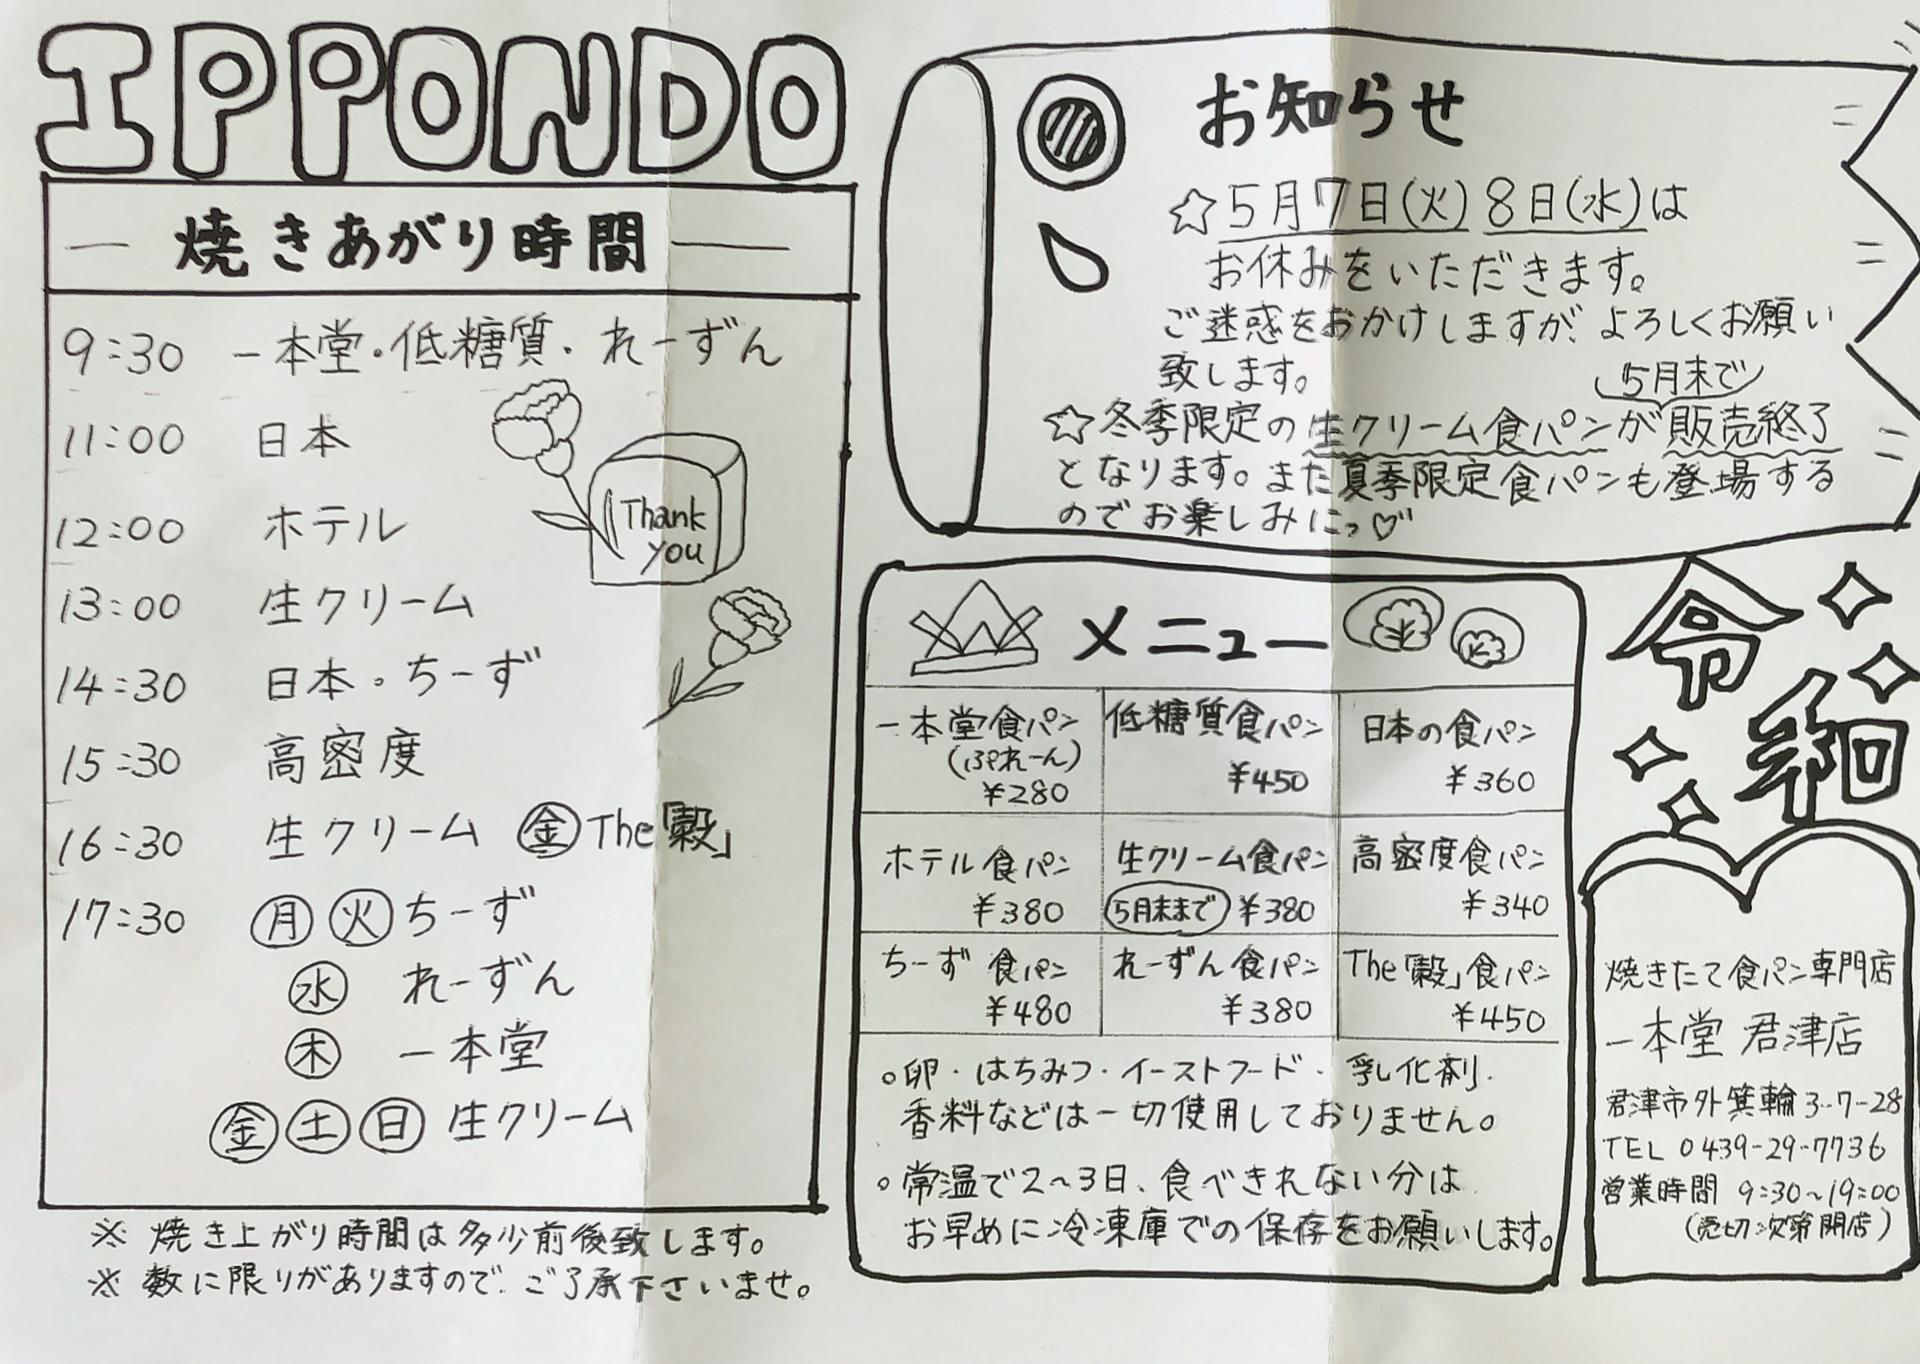 IPPONDO
焼きあがり時間
9:30 一本堂・低糖質・れーずん
11:00 日本
12:00 ホテル
13:00 生クリーム
14:30 日本・ちーず
15:30 高密度
16:30 生クリーム ㊎The「穀」
17:30 ㊊㊋ちーず
㊌ れーずん
㊍ 一本堂
㊎㊏㊐ 生クリーム
Thank
you
※ 焼き上がり時間は多少前後致します。
※ 数に限りがありますので、ご了承下さいませ。
お知らせ
☆5月7日(火) 8日(水)は
お休みをいただきます。
ご迷惑をおかけしますが、よろしくお願い
致します。
5月末で
☆冬季限定の生クリーム食パンが販売終了
となります。また夏季限定食パンも登場する
のでお楽しみにっ♡
メニュー
一本堂食パン
(ぷれーん)
¥280
低糖質食パン
¥450
日本の食パン
¥360
ホテル食パン
¥380
生クリーム食パン
5月末まで ¥380
高密度食パン
¥340
ちーず 食パン
¥480
れーずん食パン
¥380
The「穀」食パン
¥450
○卵・はちみつ・イーストフード・乳化剤・
香料などは一切使用しておりません。
○常温で2〜3日、食べきれない分は
お早めに冷凍庫での保存をお願いします。
令和
焼きたて食パン専門店
一本堂 君津店
君津市外箕輪3-7-28
TEL 0439-29-7736
営業時間 9:30〜19:00
(売切次第閉店)